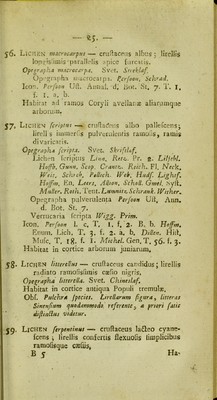 — 25. —
56. LICHEN macrocarpus — crustaceus albus; lirellis
longissimis parallelis apice furcatis.
Opegrapha macrocarpa. Svet. Streklaf.
Opegrapha macrocarpa. Persoon, Schrad.
Icon. Persoon Ust. Annal. d. Bot. St. 7. T. 1.
f. 1. a. b.
Habitat ad ramos Coryli avellanæ aliarumque
arborum.
57. LICHEN scriptus — crustaceus albo pallescens;
lirellis immersis pulverulentis ramosis, ramis
divaricatis.
Opegrapha scripta. Svet. Skriftlaf.
Lichen scriptus Linn, Retz. Pr. 2. Liljebl.
Hoffb, Gunn, Scop. Crantz. Reich. Fl, Neck,
Weis, Schreb, Pollich. Web. Huds. Lightf.
Hoffm, En. Leers, Ablon, Scholl. Gmel. Syst.
Muller, Roth. Tent. Lumnitz. Schrank. Wither.
Opegrapha pulverulenta Persoon Ust. Ann.
d. Bot. St. 7.
Verrucaria scripta Wigg. Prim.
Icon. Persoon l. c. T. 1. f. 2. B. b. Hoffm,
Enum. Lich. T. 3. f. 2. a. b, Dillen. Hist,
Musc. T. 18. f. 1. Michel. Gen. T. 56. f. 3.
Habitat in cortice arborum juniarum.
58. LICHEN litterellus — crustaceus candidus; lirellis
radiato ramosissimis cæsio nigris.
Opegrapha litterella. Svet. Chineselaf.
Habitat in cortice antiqua Populi tremulæ.
Obs. Pulchra species. Lirellarum figura, litteras
Sinensium quodammodo referente, a priori facile
distinctus videtur.
59. LICHEN serpentinus — crustaceus lacteo cyane-
scens; lirellis confertis flexuosis simplicibus
ramosisque cæsiis,
B 5 Ha-